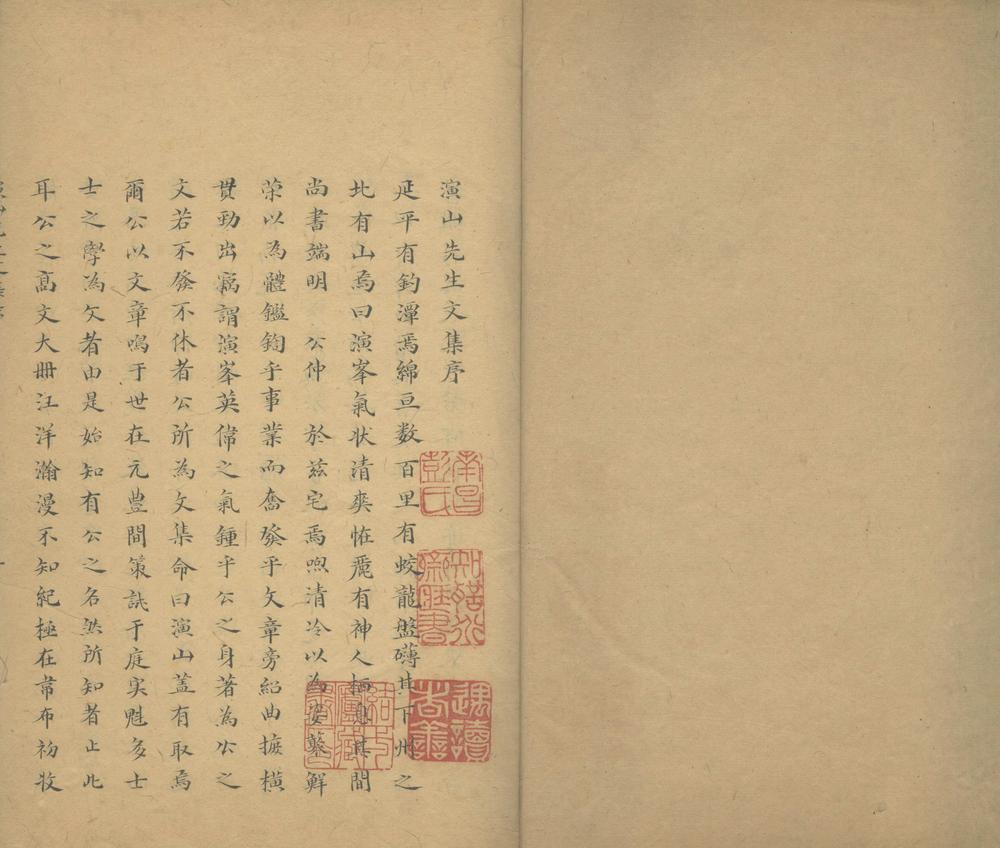 演山先生文集序
延平有釣潭焉綿亘数百里有蛟龍盤礴其下州之
北有山焉曰演峯氣狀清爽恠麗有神人栖息其間
尚書端明 公仲 於兹宅焉喣清冷以為姿蘂鮮
荣以為體鑑鉤乎事業而奮發乎文章旁紹曲摭橫
貫勁出竊謂演峯英偉之氣鍾乎公之身著為公之
文若不發不休者公所為文集命曰演山蓋有取焉
爾公以文章鳴于世在元豊間策試于庭実魁多士
士之學為文者由是始知有公之名然所知者止此
耳公之髙文大冊江洋瀚漫不知紀極在常布初收
南昌彭氏
知聖道齋藏書
遇讀者善